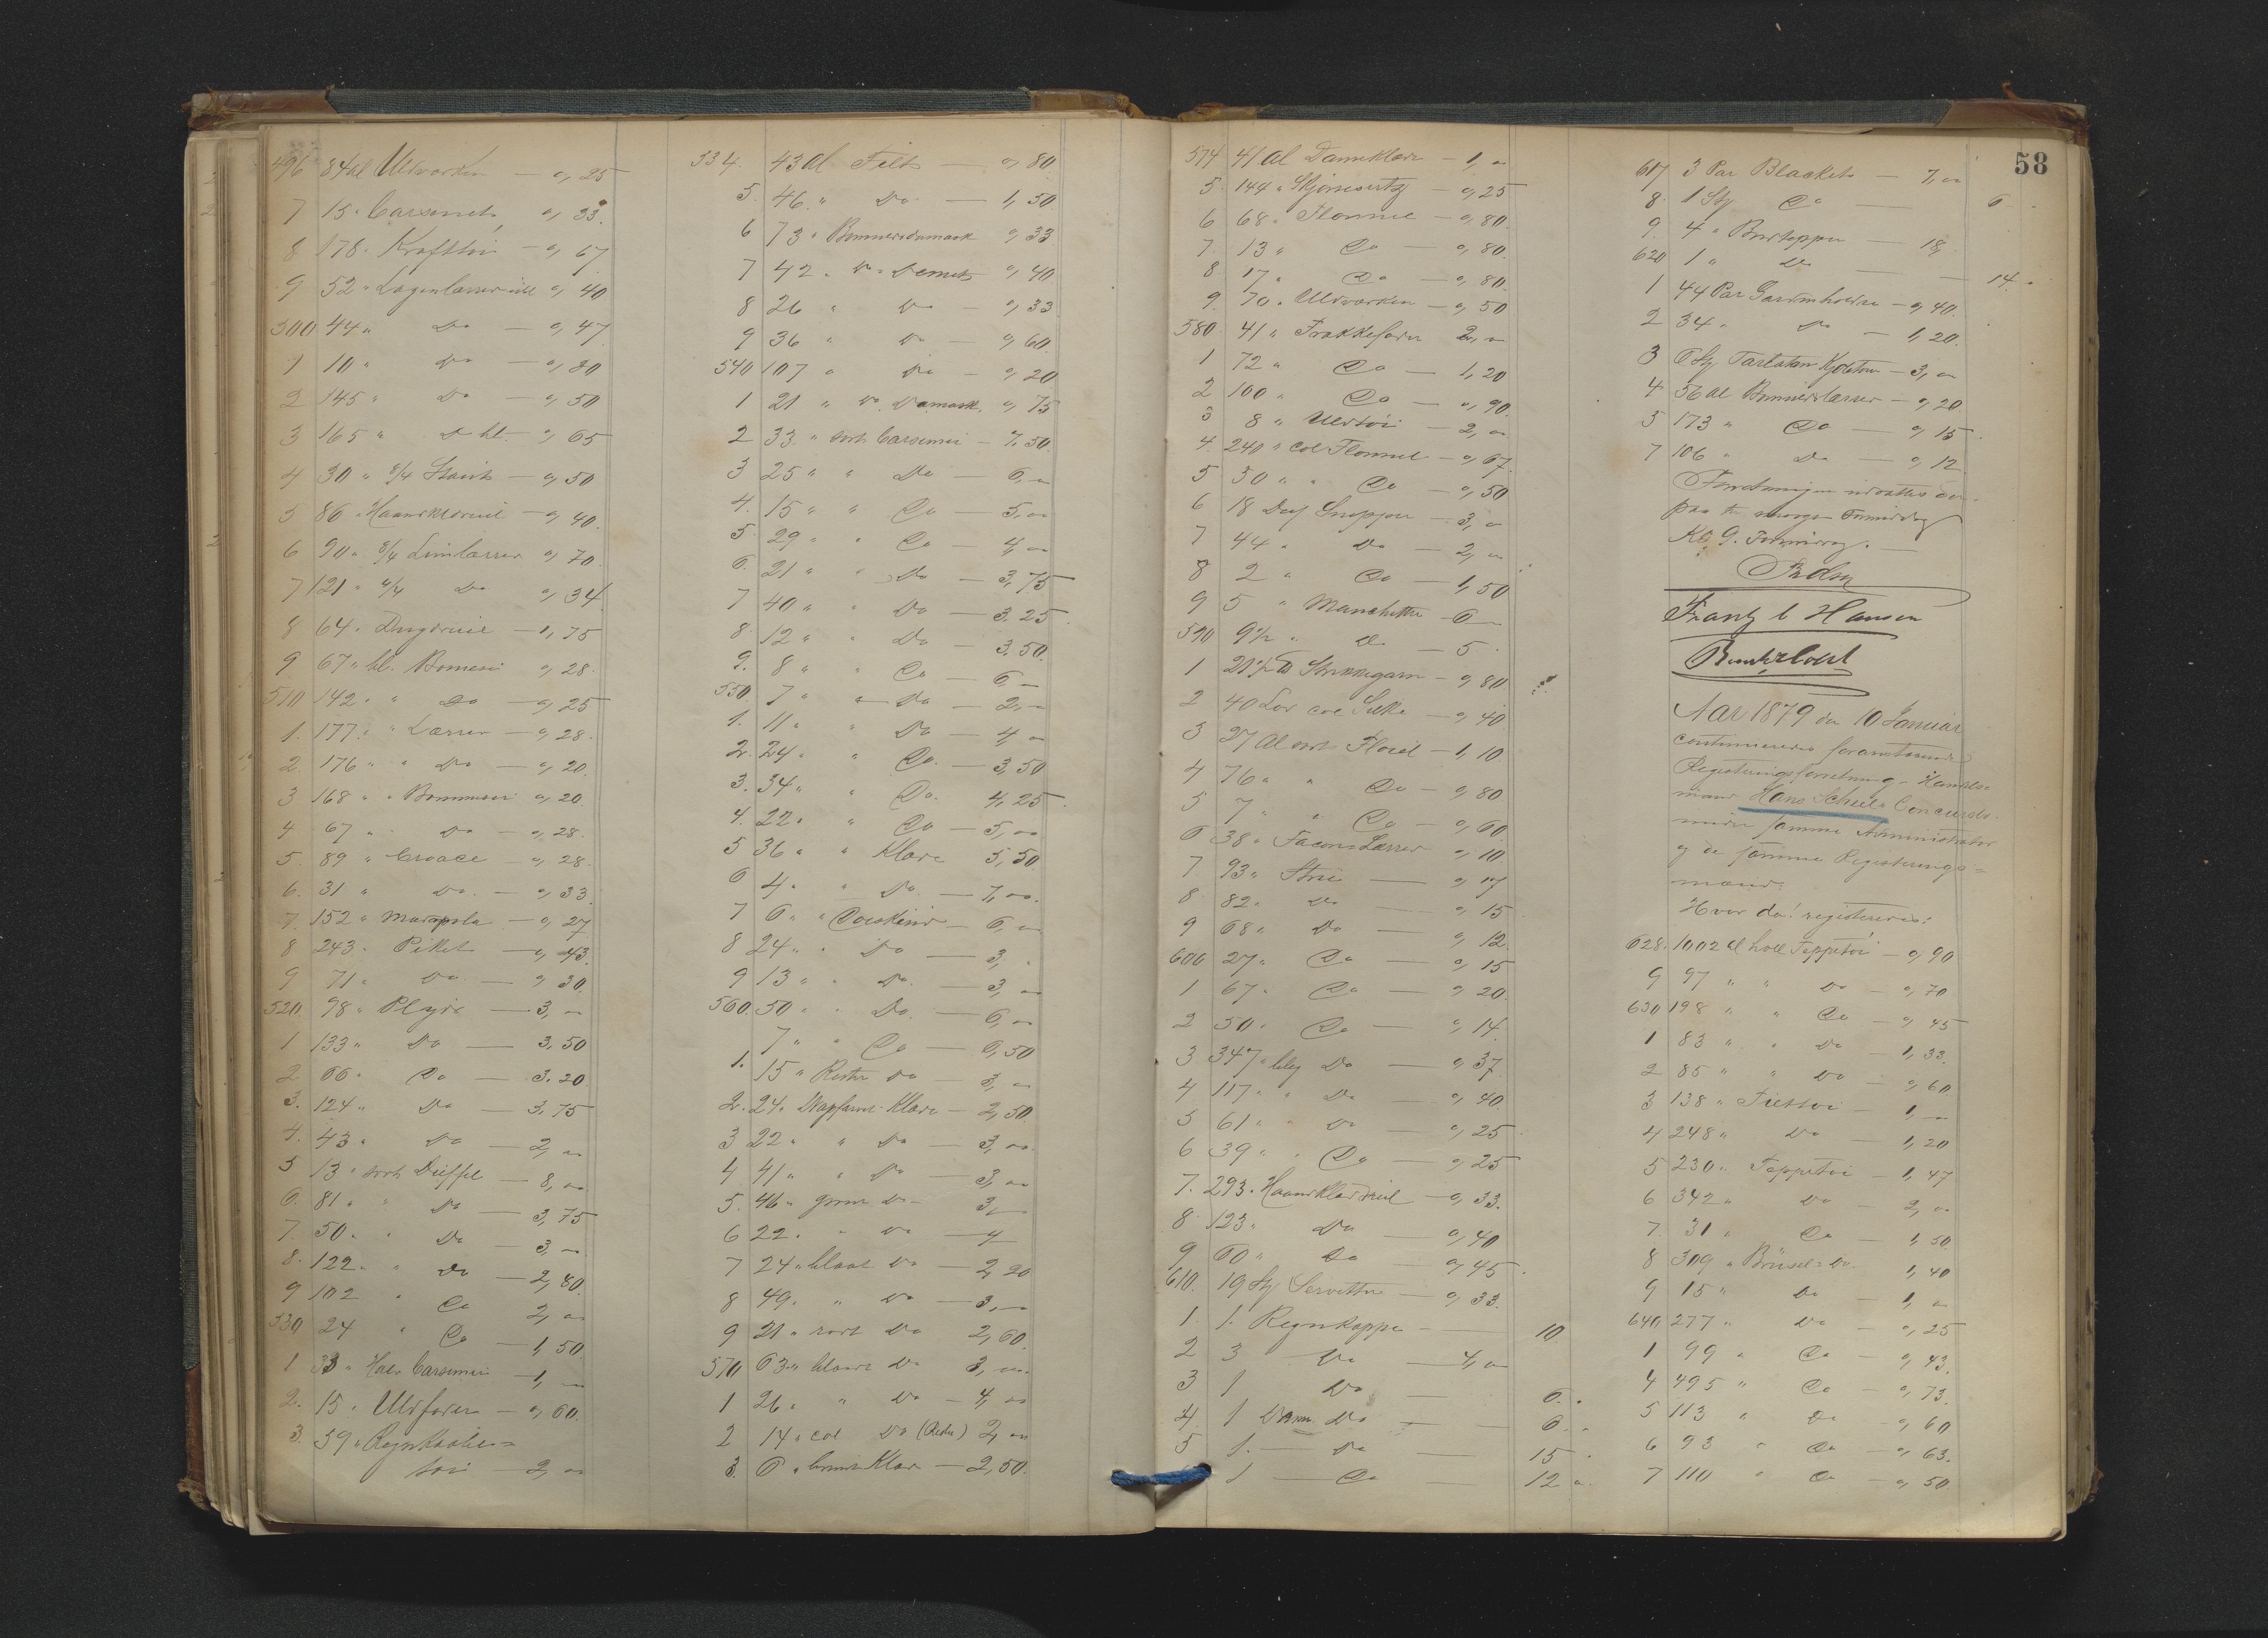 496 84 al Uldvarken — 0,25
7 15 " Carsemets 0,33.
8 178 " Krafttøi — 0,67
9 52 " Lagenlærred 0,40
500 44 " Do — 0,47
1 10 " Do — 0,80
2 145 " Do — 0,50
3 165 " Do bl. — 0,65
4 30 " 8/4 Stouts — 0,50
5 86 " — 0,40.
6 90 " 8/4 Linlærred 0,70
7 121 " 4/4 Do 0,34
8 64 " Dugdreiel — 1,75
9 67 " bl. Bomesi 0,28
510 142 " " Do — 0,25
1. 177 " " Lærred — 0,28.
2. 176 " " Do — 0,20.
3 168 " " Bommesi 0,20.
4 67 " Do — 0,28.
5. 89 " Croace — 0,28.
6. 31 " Do. — 0,33.
7. 152 " Madapola — 0,27
8 243 " Piket — 0,43.
9 71 " Do. — 0,30.
520. 98 " Plyds — 3, "
1 133 " Do — 3,50
2 66 " Do — 3.20.
3. 124 " Do — 3,75
4. 43 " Do — 2, "
5 13 " sort Düffel — 8, "
6. 81 " " Do — 3,75
7. 50 " " Do — 3, "
8. 122 " " Do — 2,80.
9 102 " Do 2, "
530 24 " Do — 1,50.
1 33 " Halv Carsemir — 1, "
2. 15 " Uldfoder — 0,60.
3. 59 " Regnkaabe=
tøi — 2, "
534. 43 al Filt — 0,80.
5. 46. " Do — 1,50
6 73 " Bommersdamask 0,33
7 42 " Do Demets 0,40.
8 26 " Do — 0,33
9 36 " Do — 0,60
540 107 " Do — 0,20
1 21 " Do Damask. 0,75
2 33. " sort Carsemir — 7.50.
3 25 " " Do — 6, "
4. 15 " " Do — 5, "
5. 29 " " Do — 4, "
6. 21 " " Do — 3,75
7 40 " " Do — 3.25.
8. 12 " " Do — 3.50.
9. 8 " " Do — 6, "
550. 7 " " Do — 2, "
1. 11 " " Do — 4, "
2. 24 " " Do. — 3,50
3. 34 " " Do. 4,25.
4. 22 " " Do — 5, "
5 36 " " Klæde 5,50.
6 4 " " Do. — 7, "
7 6 " " Doeskind — 6, "
8 24 " " Do — 3, "
9 13 " " Do. — 3, "
560. 50 " " Do. — 6, "
7 " " Do — 6,50
1. 15 " Rester Do — 3, "
2. 24 " Klæde — 2,50.
3 22 " " Do — 3, "
4 41 " " Do — 3, "
5. 46 " grønt Do — 3, —
6 22 " " Do — 4
7 24 " blaat Do — 2,20
8 49 " " Do — 3, —
9 21 " rødt Do 2,60.
570 63 " blaat Do 3, "
1 26 " " Do — 4, "
2 14 " col Do (Rester) 2, "
3. 6 " brunt Klæde — 2,50.
58
574 41 al Dameklæde — 1, "
5. 144 " Skjortesertz — 0,25
6 68 " Flonnel — 0,80.
7. 13 " Do — 0,80.
8 17 " Do — 0,80.
9. 70 " Uldvarken — 0,50
580. 41 " Frakkefoder 2, "
1 72 " Do — 1,20
2 100 " Do — 0,90.
3 8 " Uldtøi — 2, "
4. 240 " col Flonnel — 0,67.
5 30 " " Do — 0,50
6 18 Dus Snipper — 3, "
7 44 " Do — 2, "
8 2 " Do — 1,50
9 5 " Manchetter — 6
590 9½ " Do — 5.
1 21½ ℔ Strikkegarn — 0,80.
2 40 Lod col Silke — 0,40.
3 27 al sort Fløiel — 1,10.
4 76 " " Do — 0,80
5 7 " " Do — 0,60.
6 38 " Facons Lærred 0,10
7 93 " Strie — 0,17
8 82 " Do — 0,15
9 68 " Do — 0,12.
600 27 " Do — 0,15
1 67 " Do — 0,20.
2 50 " Do — 0,14.
3 347 " bleg Do — 0,37.
4 117 " " Do — 0,40
5 61 " " Do — 0,25
6 39 " " Do — 0,25
7. 293 " Haandklædedreiel — 0,33.
8 123 " Do — 0,40
9 60 " Do — 0,45.
610. 19 Stz Servietter — 0,33.
1. 1. Regnkappe — 10
2 3 — Do — 4, "
3 1 Do — 6. "
4 1 Dame Do — 6. "
5 1. — Do — 15 "
1 — Do — 12 "
617 3 Par Blankets — 7, "
8. 1 Stz Do — 6 "
9. 4 " Bordtæpper — 18,
620 1 " Do — 14 "
1 44 Par Gardinholdere — 0,40.
2 34 " Do — 1,20.
3 6 Stz Tarlatan Kjoletøi — 3, "
4 56 al Bommeldslærred — 0,20
5 173 " Do — 0,15.
7 106 " Do — 0,12
Forretningen udsattes der=
paa til morgen Formiddag
Kl 9. Formiddag. —
Frantz C Hansen
Aar 1879 den 10 Januar
continueredes foranstaaende
Registeringsforretning i Handels=
mand Hans Scheels Concursbo
under samme Administrator
og de samme Registerings=
mænd.
Hvor da! registeredes:
628. 1002 al holl Teppetøi — 0,90
9 97 " " Do — 0,70
630 198 " " Do — 0,45
1 83 " " Do — 1,33.
2 85 " " Do — 0,60
3 138 " Filttøi — 1, "
4 248 " Do — 1,20
5 230 " Teppetøi — 1,47
6 342 " Do — 2, "
7. 31 " Do — 1,50.
8 309 " Brüssel= Do. 1,40
9 15 " Do — 1, "
640 277 " Do — 0,25
1 99 " Do — 0,43.
4 495 " Do — 0,73.
5 113 " Do — 0,60
6 93 " Do — 0,63.
7 110 " Do — 0,50